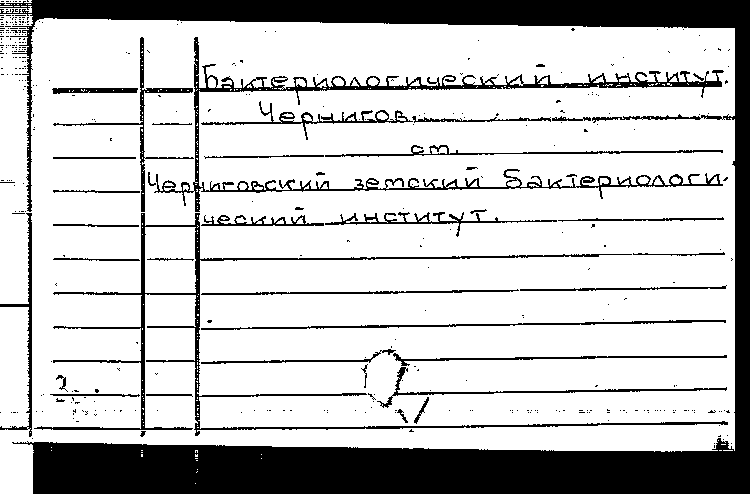 Бактериологический институт.
Чернигов.
см.
Черниговский земский бактериологи-
ческий институт.